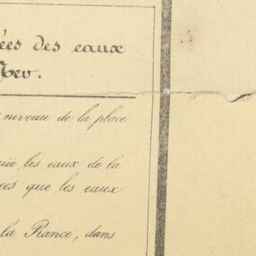 ées des eaux
Mer.
niveau de la place
les eaux de la
que les eaux
la Rance, dans